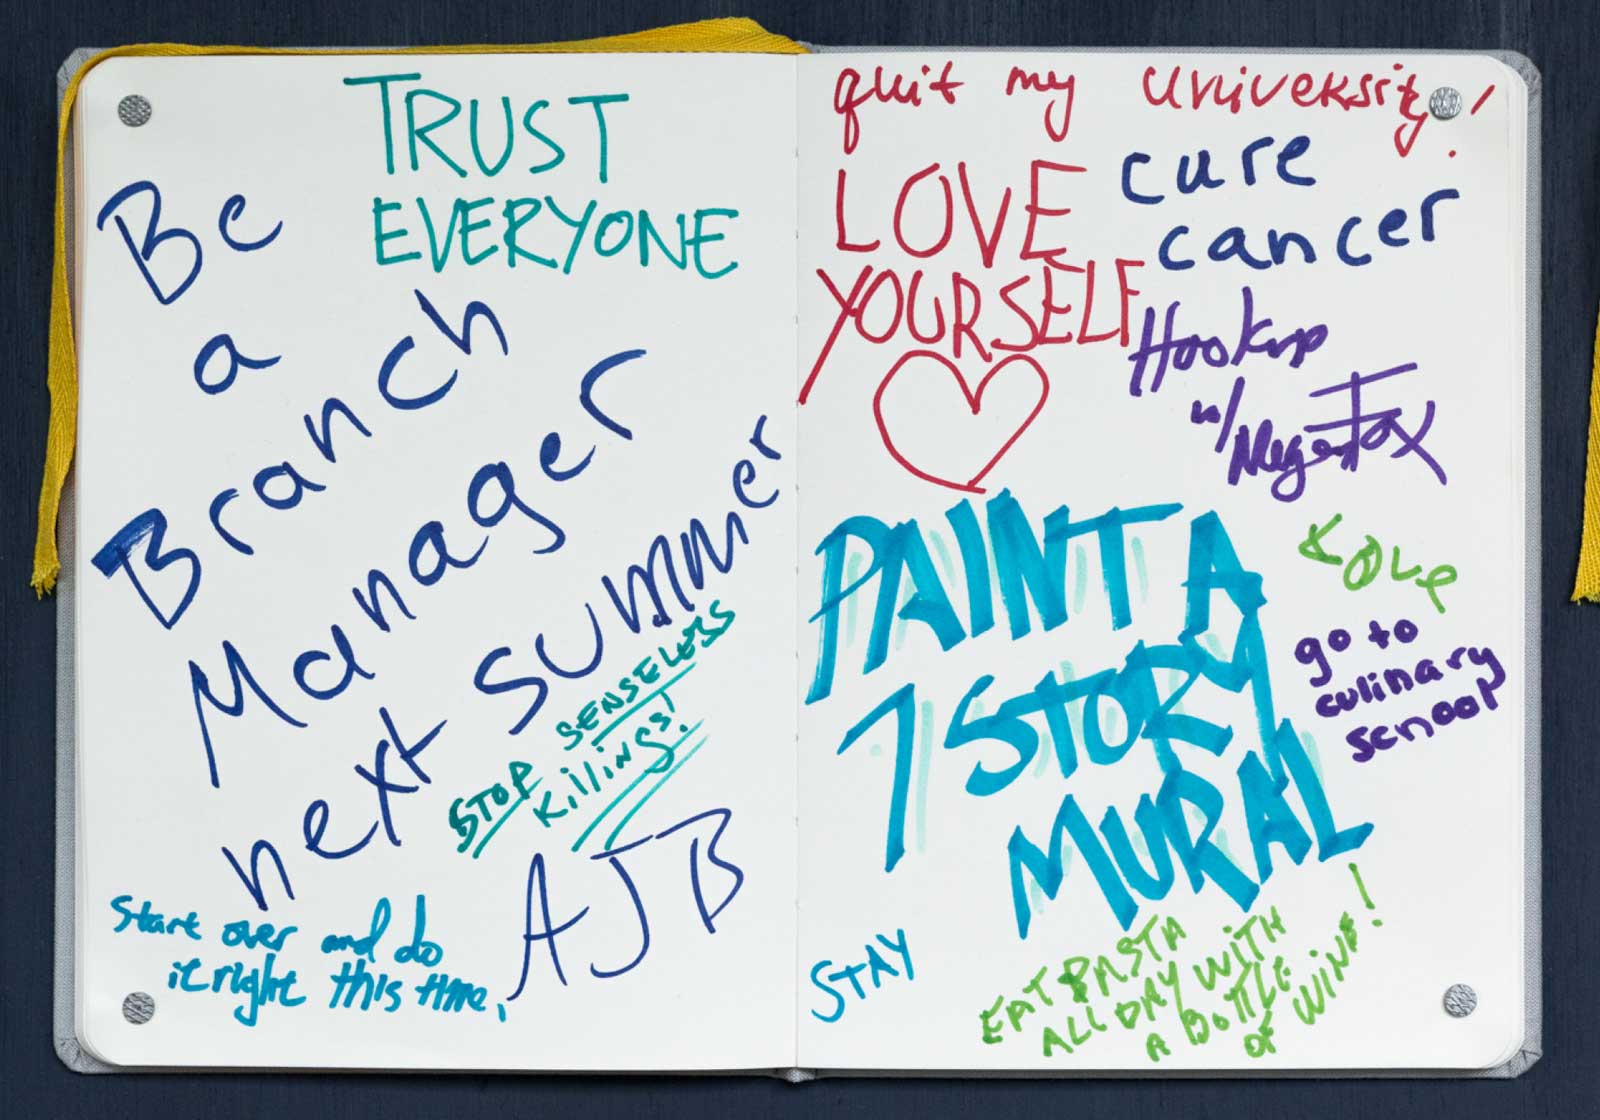 TRUST
EVERYONE
Be
a
Branch
Manager
next summer
AJB
STOP SENSELESS
Killings!
Start over and do
it right this time,
quit my university!
LOVE
YOURSELF
cure
cancer
Hookup
w/
Megan Fox
LOVE
PAINT A
7 STORY
MURAL
go to
culinary
school
STAY
EAT PASTA
ALL DAY WITH
A BOTTLE
OF WINE!